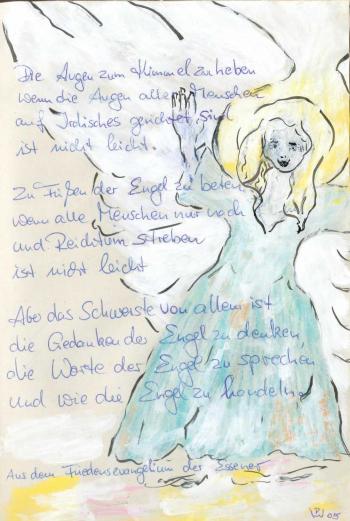 Die Augen zum Himmel zu heben
wenn die Augen aller Menschen
auf Irdisches gerichtet sind
ist nicht leicht.
Zu Füßen der Engel zu beten
wenn alle Menschen nur nach
und Reichtum streben
ist nicht leicht
Aber das Schwerste von allem ist
die Gedanken der Engel zu denken,
die Worte der Engel zu sprechen
und wie die Engel zu handeln.
Aus dem Friedensevangelium der Essener
PW 05